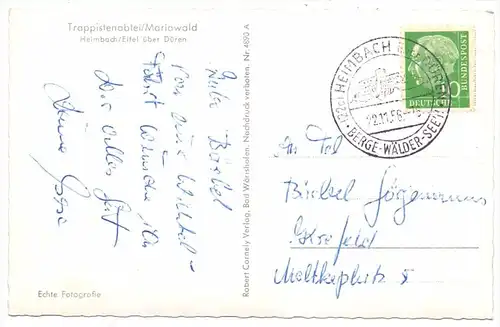 Trappistenabtei/Mariawald
Heimbach/Eifel über Düren
Liebe Bärbel
von
Fahrt wünsche ich
Dir alles Gute
Deine
Echte Fotografie
Robert Cornely Verlag, Bad Wörishofen. Nachdruck verboten. Nr. 4690 A
(22c) HEIMBACH
22.11.56
BERGE-WÄLDER-SEEN
DEUTSCHE
BUNDESPOST
10
An
Bärbel
Krefeld
Moltkeplatz